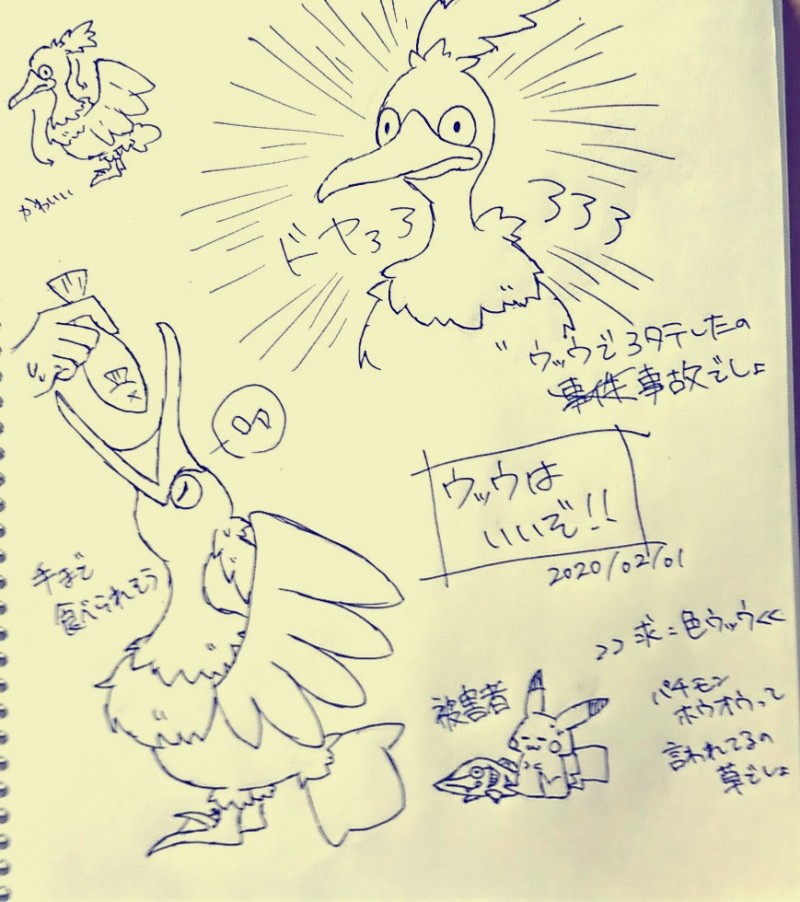 かわいい
ドヤろろ
ろろろ
ウッウで3タテしたの
事故でしょ
ウッウは
いいぞ!!
2020/02/01
手まで
食べられそう
>> 求:色ウッウ <<
被害者
パチモン
ホウオウって
言われてるの
草でしょ